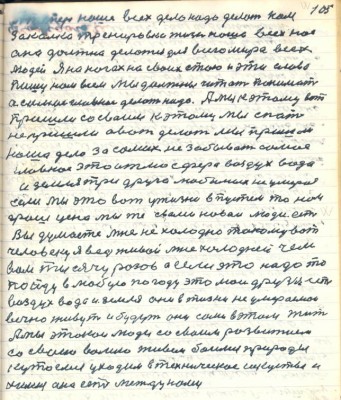 105
тер наше всех дело надо делат нам
Закалка тренировка жизн наша всех нас
она должна делатся для всего мира всех
людей Я на ногах на своих стою и эти слова
пишу нам всем Мы должны читат понимат
а самое главное делат надо. А мы к этому вот
пришли со своим к этому мы спат
не пришли а вот делат мы пришли
наша дело за самих не забыват самое
главное это атмосфера воздух вода
и земля три друга любимых не умират
если мы это вот у жизни впустим то нам
цена мы же с вами новая люди ест
Вы думаете мне не холодно такому вот
человеку я вед живой мне холодней чем
вам тысячу разов а если это надо то
пойду в любую погоду это мои друзья ест
воздух вода и земля они в жизне не умираемое
вечно живут и будут они сами в этом жит
А мы этакой люди со своим развитием
со своею волею живем боимся природы
кутаемся уходим в техническое искуство и
химия она ест между нами